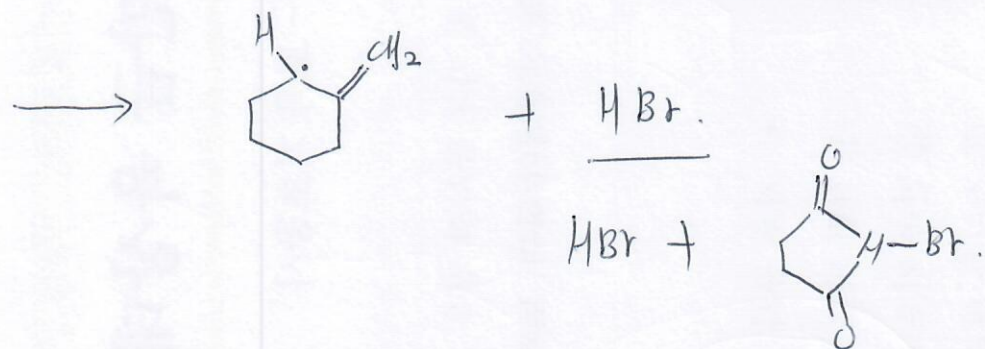 H
CH2
+ HBr.
O
HBr + N-Br.
O